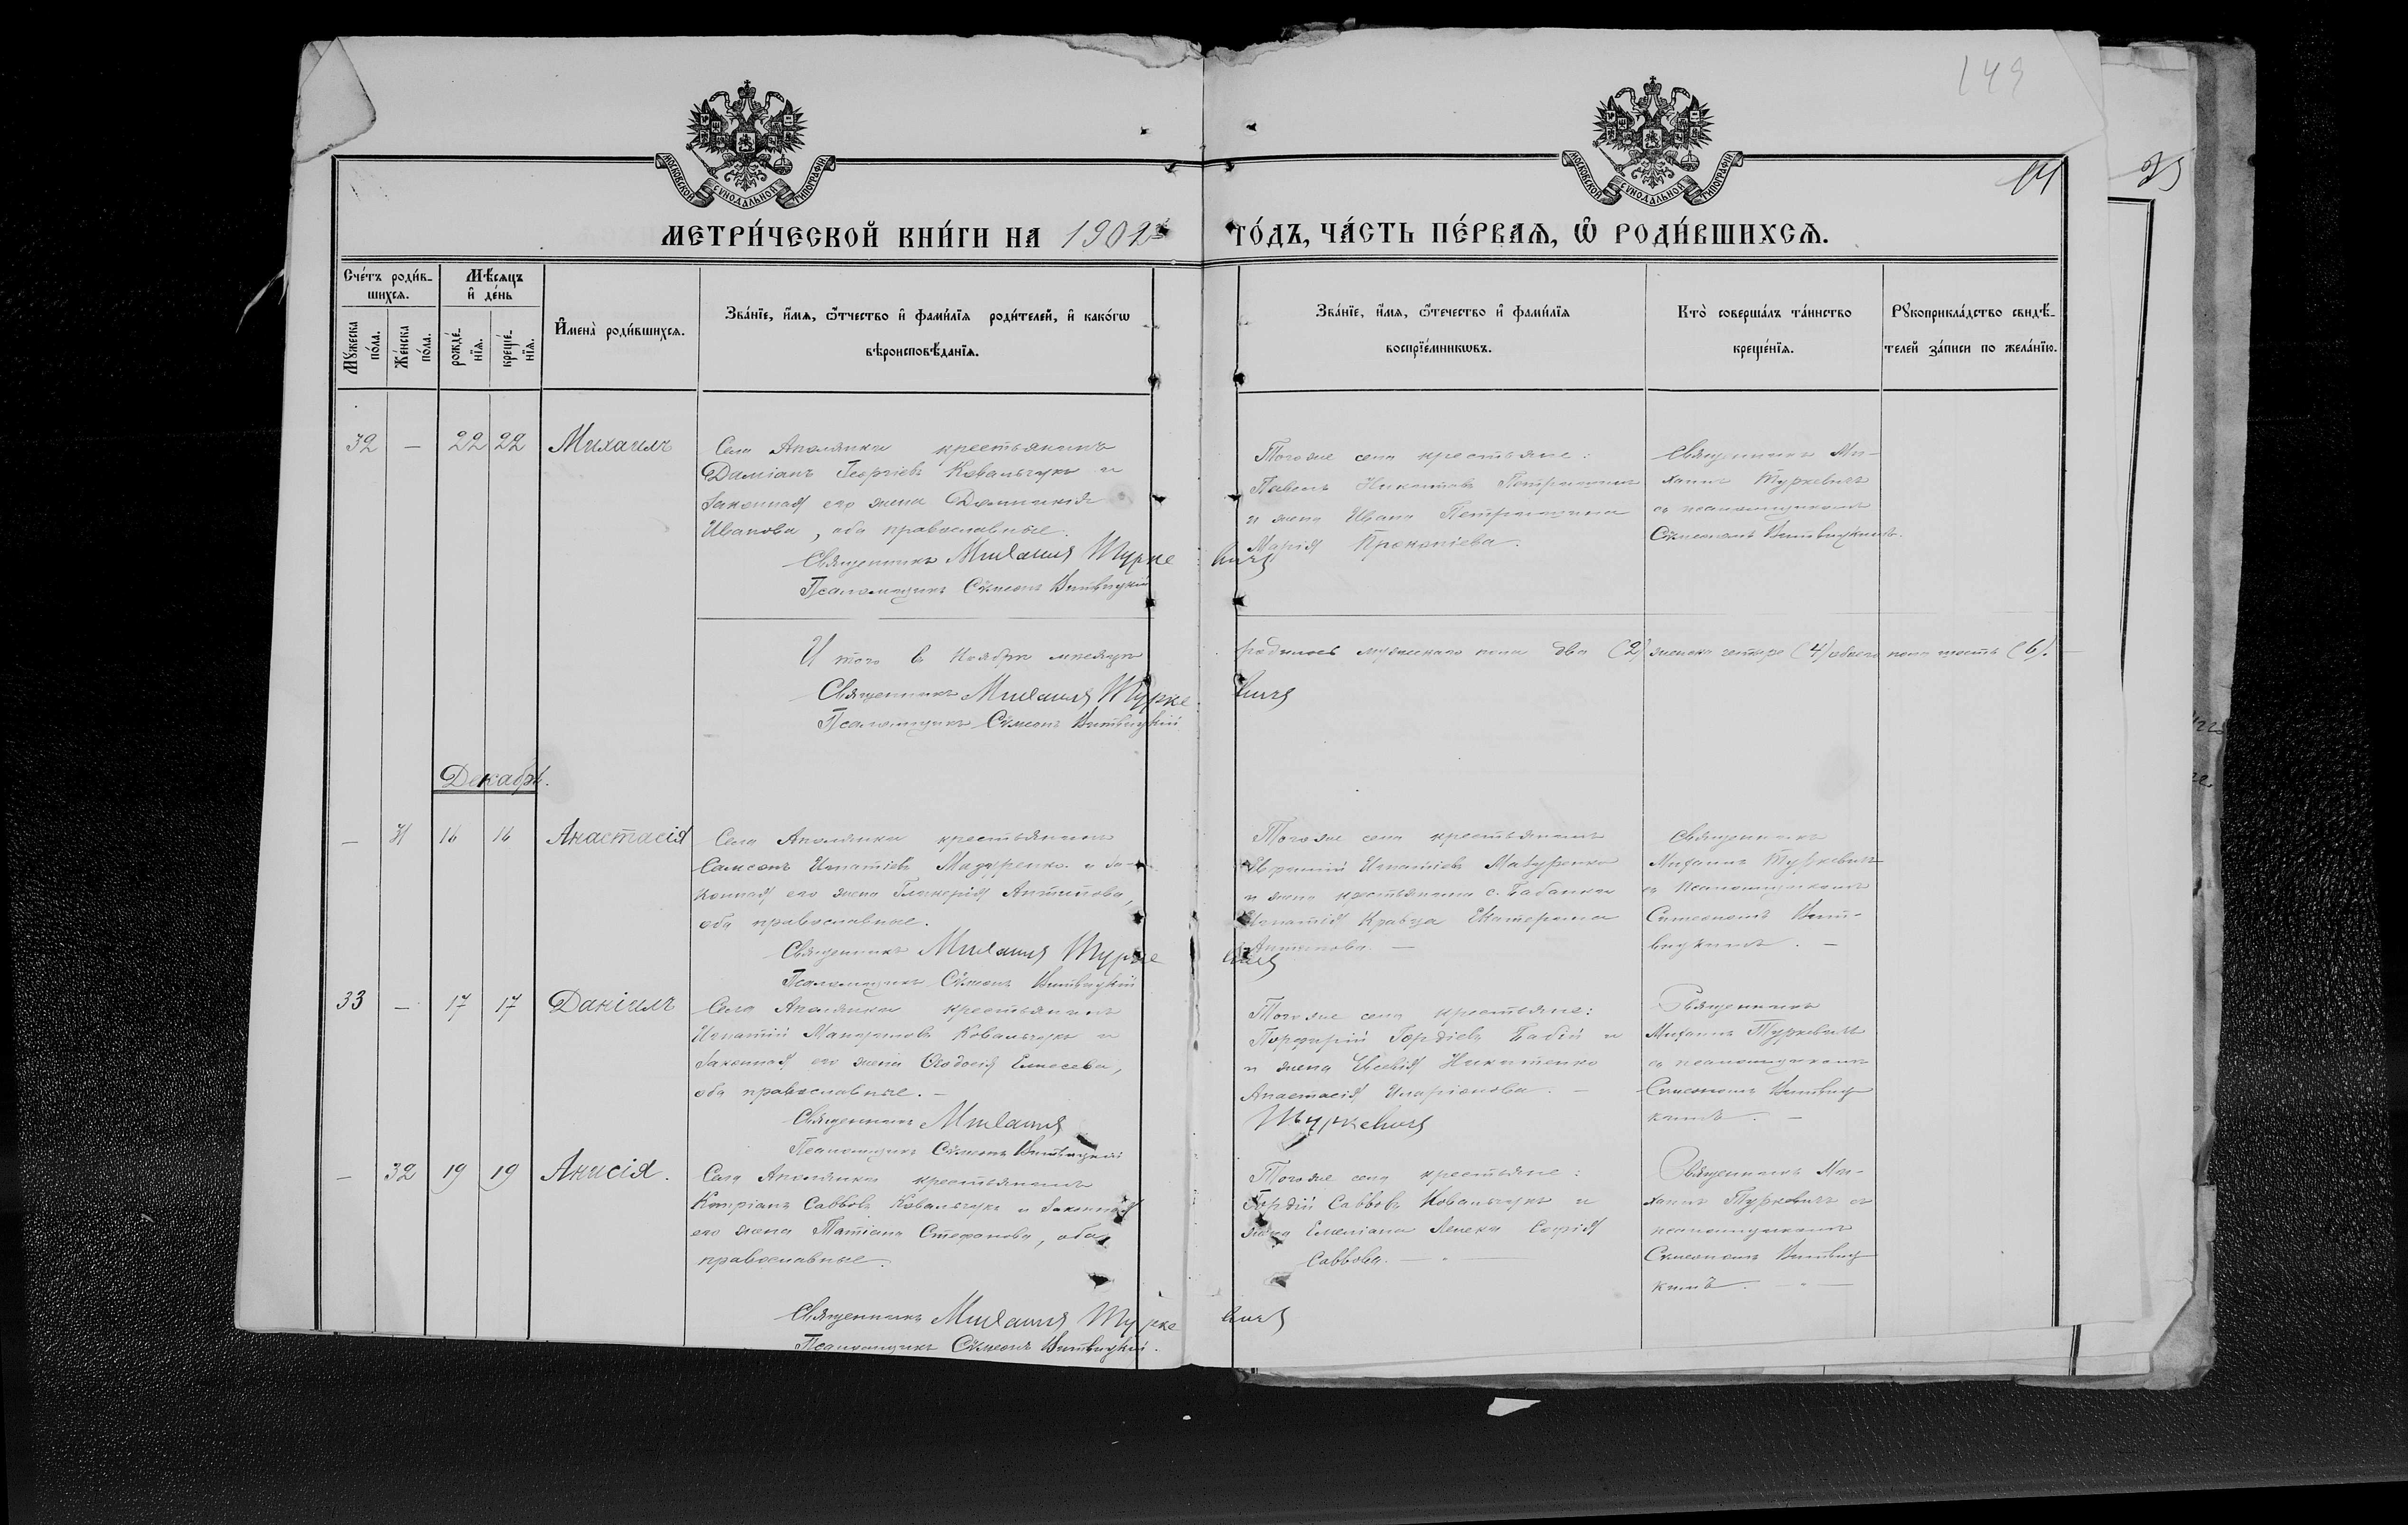 149
14
35
МОСКОВСКОЙ СѴНОДАЛЬНОЙ ТИПОГРАФІИ
МОСКОВСКОЙ СѴНОДАЛЬНОЙ ТИПОГРАФІИ
МЕТРИ́ЧЕСКОЙ КНИ́ГИ НА 1902й
ГО́ДЪ, ЧА́СТЬ ПЕ́РВАѦ, Ѽ РОДИ́ВШИХСѦ.
Сче́тъ роди́в-
шихсѧ.
Мꙋжеска по́ла.
Же́нска по́ла.
Мѣ́сѧцъ
и҆ де́нь
рожде́нїѧ.
креще́нїѧ.
И҆мена̀ роди́вшихсѧ.
Зва́нїе, и҆́мѧ, ѻ҆́тчество и҆ фами́лїѧ роди́телей, и҆ како́гѡ
вѣроисповѣ́данїѧ.
Зва́нїе, и҆́мѧ, ѻ҆́течество и҆ фами́лїѧ
воспрїе́мникѡвъ.
Кто̀ соверша́лъ та́инство
креще́нїѧ.
Рꙋкоприкла́дство свидѣ́-
телей за́писи по жела́нїю.
32 — 22 22 Михаилъ
Села Аполянки крестьянинъ
Даміанъ Георгіевъ Ковальчукъ и
законная его жена Домникія
Иванова, оба православные.
Священникъ Михаилъ Туркевичъ
Псаломщикъ Сѵмеонъ Витвицкій
Тогоже села крестьяне:
Павелъ Никитовъ
и жена Ивана
Марія Прокопіева.
Священникъ Ми-
хаилъ Туркевичъ
съ псаломщикомъ
Сѵмеономъ Витвицкимъ.
Итого въ Ноябрѣ мѣсяцѣ родилось мужескаго пола два (2) женска четыре (4) обоего пола шесть (6).
Священникъ Михаилъ Туркевичъ
Псаломщикъ Сѵмеонъ Витвицкій
Декабрь.
— 31 16 16 Анастасія
Села Аполянки крестьянинъ
Самсонъ Игнатіевъ Мазуренко и за-
конная его жена Гликерія Антипова,
оба православные.
Священникъ Михаилъ Туркевичъ
Псаломщикъ Сѵмеонъ Витвицкій
Тогоже села крестьянинъ
Игнатіевъ Мазуренко
и жена крестьянина с. Бабанки
Игнатія Кравца Екатерина
Антипова. —
Священникъ
Михаилъ Туркевичъ
съ Псаломщикомъ
Сѵмеономъ Вит-
вицкимъ. —
33 — 17 17 Даніилъ
Села Аполянки крестьянинъ
Игнатій Ковальчукъ и
законная его жена Ѳеодосія Елисеева,
оба православные. —
Священникъ Михаилъ Туркевичъ
Псаломщикъ Сѵмеонъ Витвицкій
Тогоже села крестьяне:
Порфирій Гордіевъ Бабій и
и жена Евсевія Никитенко
Анастасія Иларіонова. —
Священникъ
Михаилъ Туркевичъ
съ псаломщикомъ
Сѵмеономъ Витвиц-
кимъ. —
— 32 19 19 Анисія.
Села Аполянки крестьянинъ
Кипріанъ Саввовъ Ковальчукъ и законная
его жена Татіана Стефанова, оба
православные.
Священникъ Михаилъ Туркевичъ
Псаломщикъ Сѵмеонъ Витвицкій.
Тогоже села крестьяне:
Гордій Саввовъ Ковальчукъ и
жена Емеліана Софія
Саввова. —
Священникъ Ми-
хаилъ Туркевичъ съ
псаломщикомъ
Сѵмеономъ Витвиц-
кимъ. —